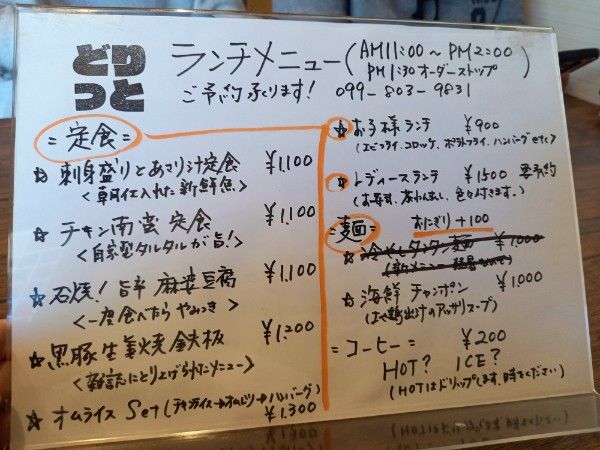 どりっと
ランチメニュー(AM11:00〜PM2:00
PM1:30オーダーストップ)
ご予約承ります! 099-803-9831
=定食=
☆ 刺身盛りとあさり汁定食 ¥1,100
<朝仕入れた新鮮魚>
☆ チキン南蛮定食 ¥1,100
<自家型タルタルが旨!>
☆ 石焼!旨辛麻婆豆腐 ¥1,100
<一度食べたらやみつき>
☆ 黒豚生姜焼鉄板 ¥1,200
<雑誌にとり上げられたメニュー>
☆ オムライスSet(チキンライス→オムレツ→ハンバーグ)
¥1,300
☆ お子様ランチ ¥900
(エビフライ、コロッケ、ポテトフライ、ハンバーグetc)
☆ レディースランチ ¥1500 要予約
(お寿司、茶わんむし、色々付きます。)
=麺= おにぎり+100
☆ 冷やしタンタン麺 ¥1,000
☆ 海鮮チャンポン ¥1,000
出汁のアッサリスープ)
=コーヒー= ¥200
HOT? ICE?
(HOTはドリップします、時をください)